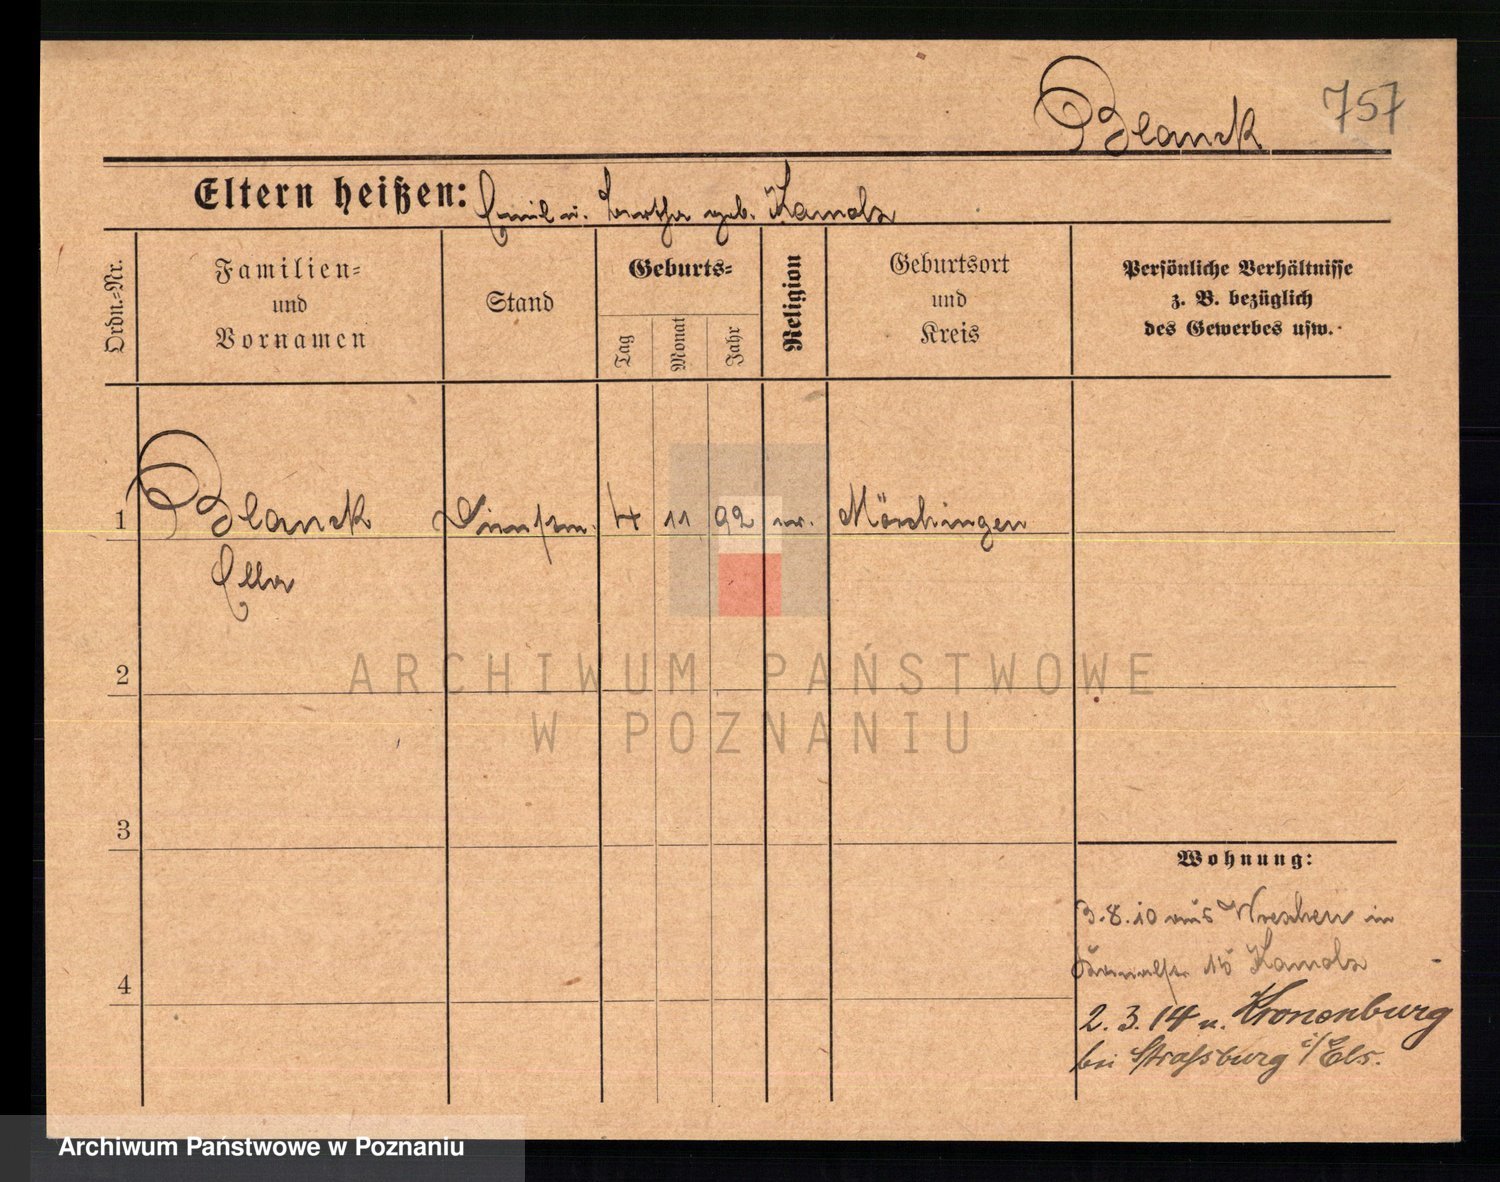 Blanck
757
Eltern heißen: Emil u. Bertha geb. Kamolz
Ordn.-Nr.
Familien-
und
Vornamen
Stand
Geburts-
Tag
Monat
Jahr
Religion
Geburtsort
und
Kreis
Persönliche Verhältnisse
z. B. bezüglich
des Gewerbes usw.
1 Blanck 4 11 92 Mörchingen
Ella
2
ARCHIWUM PAŃSTWOWE
W POZNANIU
3
Wohnung:
3.8.10 aus Wreschen in
15 Kamolz
4
2.3.14 n. Kronenburg
bei Straßburg i/Els.
Archiwum Państwowe w Poznaniu